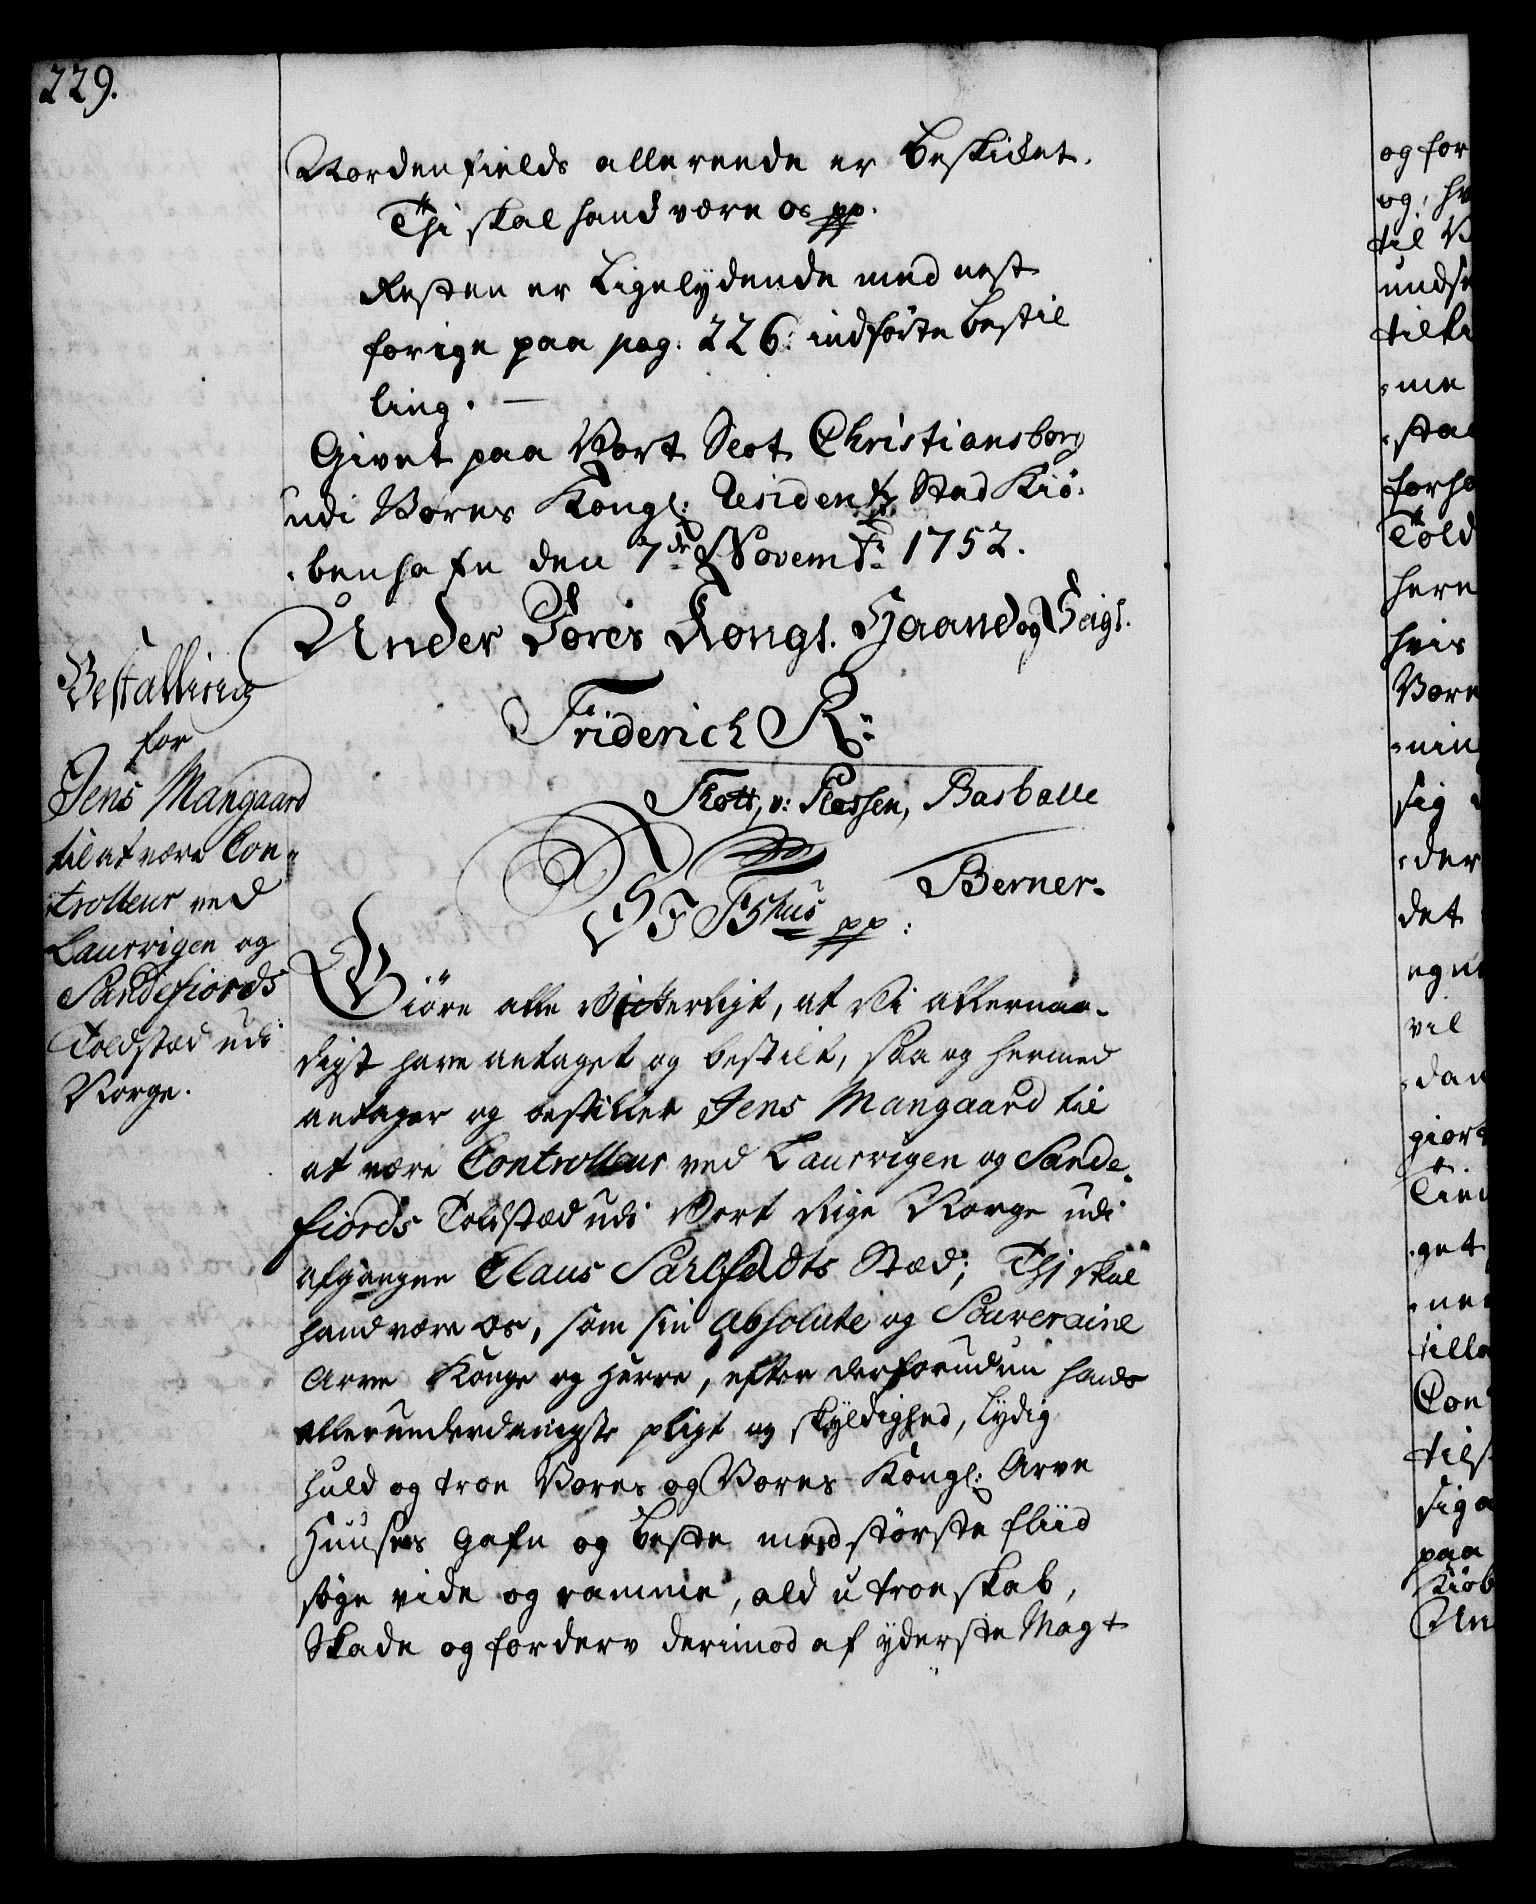 229.
Nordenfields allereede er beskicket.
Thi skal hand være os pp.
Resten er Ligelydende med nest
forige paa pag. 226: indførte Bestil
ling. —
Givet paa Vort Slot Christiansborg
udi Vores Kongl: Residentz Stad Kiö-
benhafn den 7de Novembr: 1752.
Under Vores Kongl. Haand og Seigl.
Friderich R:
Thott, v: Plessen, Basballe
Berner.
Bestalling
for
Jens Mangaard
til at være Con-
trolleur ved
Laurvigen og
Sandefiords
Toldstæd udi
Norge.
S F F 5tus pp:
Giöre alle Vitterligt, at Vi allernaa-
digst have antaget og bestilt, saa og hermed
antager og bestiller Jens Mangaard til
at være Controlleur ved Laurvigen og Sande-
fiords Toldstæd udi Vort Rige Norge udi
afgangne Claus Sarlfadts Stæd; Thj skal
hand være os, som sin Absolute og Souveraine
Arve Konge og Herre, efter derforuden hands
allerunderdanigste pligt og skyldighed, lydig
huld og troe Vores og Vores Kongl: Arve
Huuses Gafn og beste med største fliid
søge vide og ramme, ald utroeskab,
Skade og forderv derimod af yderste Magt
og for
og, hv
til V
undse
tilki
-me
-sta
forho
Told
here
hvis
Vore
-nin
sig
-der
det
egne
vil
-dan
giort
Tien
-get
-ne
tille
Con
tils
sig a
paa
Kiöb
Un